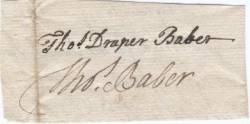 Tho.s Draper Baber
Tho.s Baber